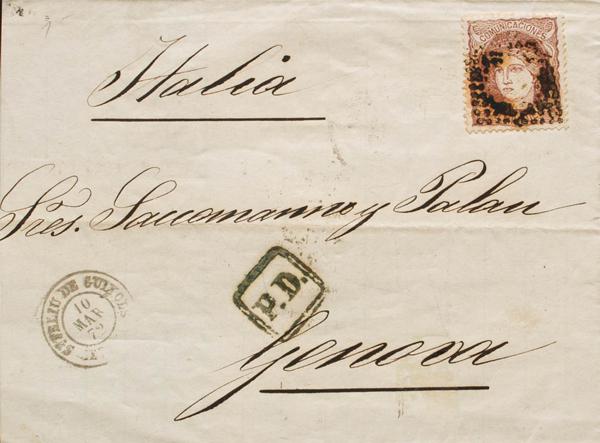 COMUNICACIONES
Italia
Sres. Saccomanno y Palau
P.D.
Sn FELIU DE GUIXOLS
10
MAR
72
Genova